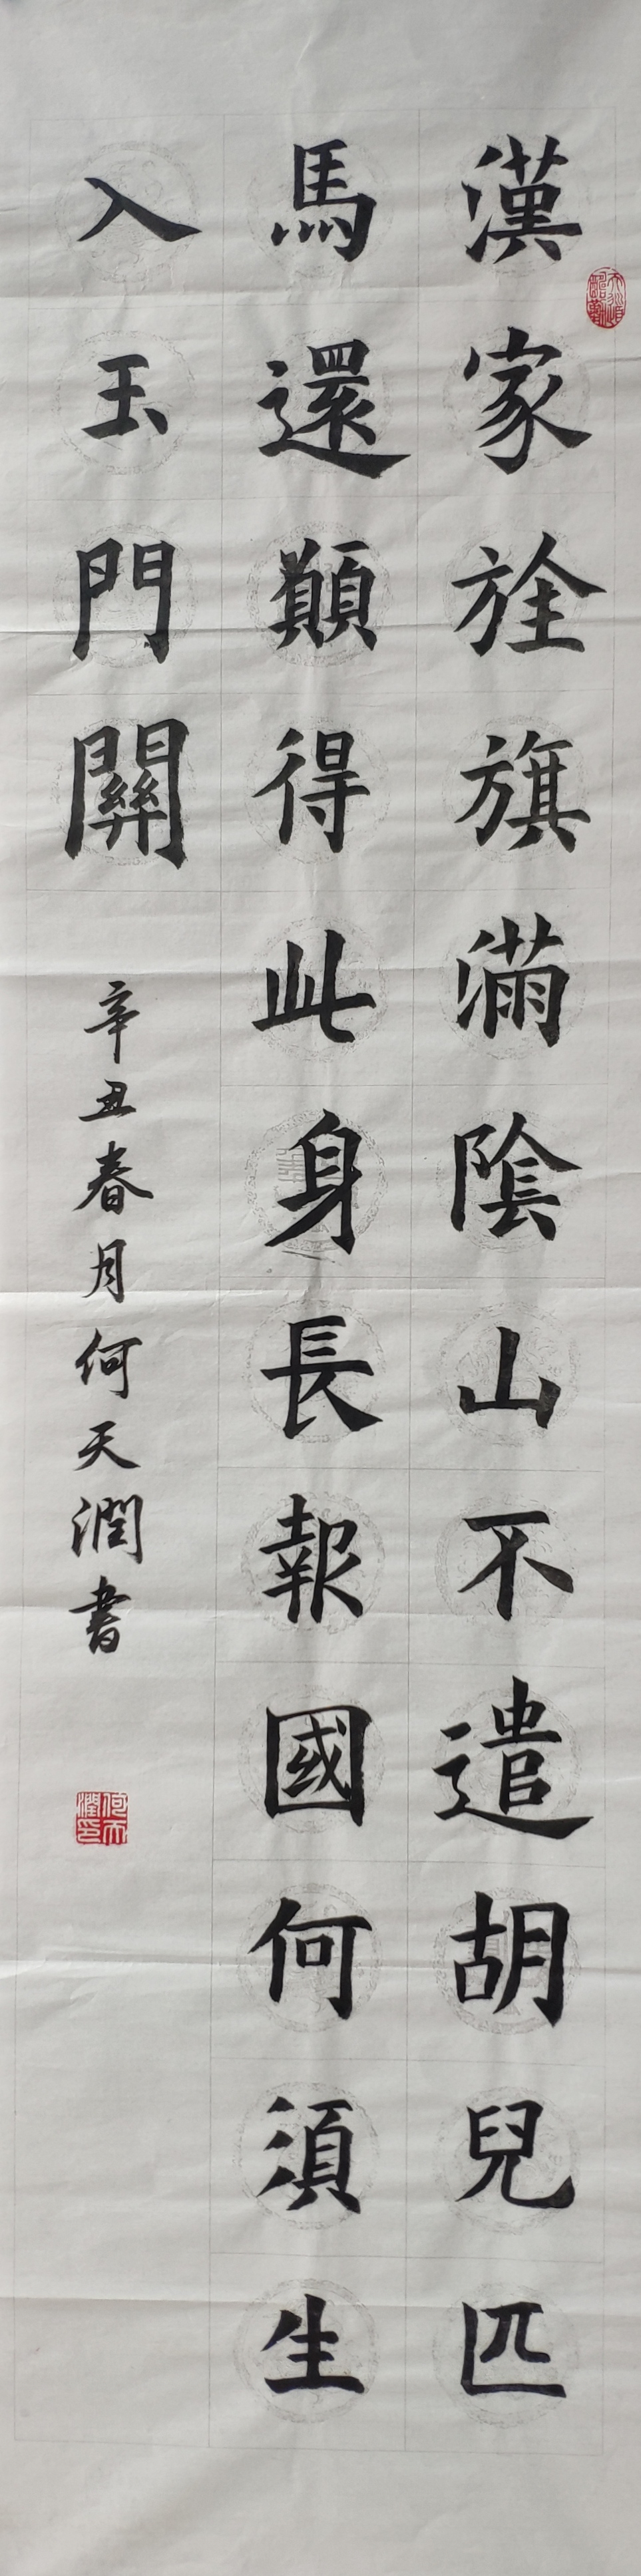 漢家旌旗滿陰山不遣胡兒匹
馬還願得此身長報國何須生
入玉門關
辛丑春月何天潤書
何天潤印